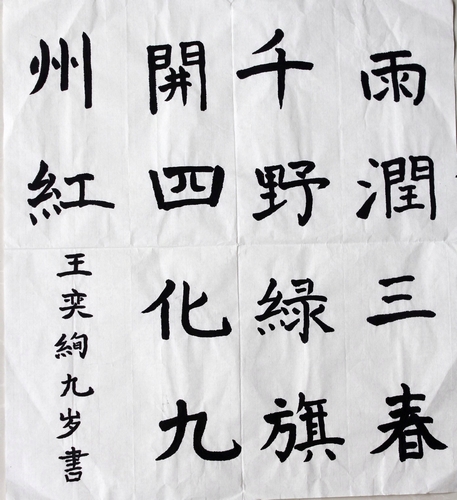 雨潤三春
千野緑旗
開四化九
州紅
王奕絢九岁書